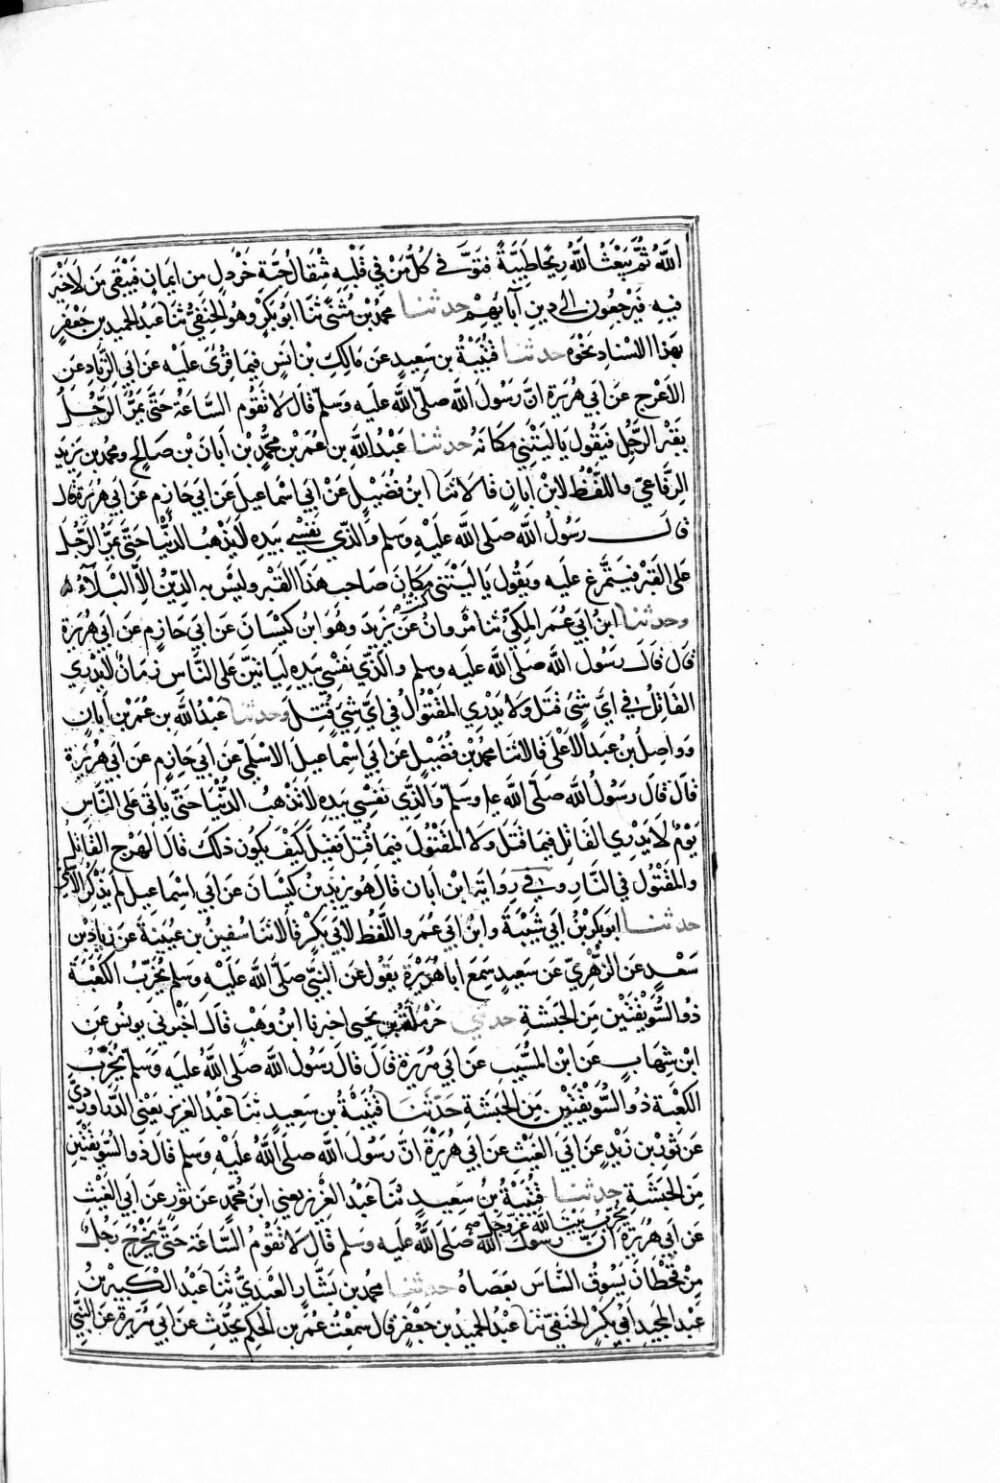 اللَّهُ ثُمَّ يَبْعَثُ اللَّهُ رِيحًا طَيِّبَةً فَتَوَفَّى كُلُّ مَنْ فِي قَلْبِهِ مِثْقَالُ حَبَّةِ خَرْدَلٍ مِنْ إِيمَانٍ فَيَبْقَى مَنْ لَا خَيْرَ
فِيهِ فَيَرْجِعُونَ إِلَى دِينِ آبَائِهِمْ حدثنا محمد بن مُثَنًّى ثَنَا أَبُو بَكْرٍ وَهُوَ الْحَنَفِيُّ ثَنَا عَبْدُ الْحَمِيدِ بن جَعْفَرٍ
بهَذَا الْاسْنَادِ نَحْوَهُ حدثنا قُتَيْبَةُ بن سَعِيدٍ عَن مَالِكِ بْنِ أَنَسٍ فِيمَا قُرِئَ عَلَيْهِ عَنْ أَبِي الزِّنَادِ عَنِ
الْأَعْرَجِ عَنْ أَبِي هُرَيْرَةَ أَنَّ رَسُولَ اللَّهِ صَلَّى اللَّهُ عَلَيْهِ وَسَلَّمَ قَالَ لَا تَقُومُ السَّاعَةُ حَتَّى يَمُرَّ الرَّجُلُ
بِقَبْرِ الرَّجُلِ فَيَقُولُ يَا لَيْتَنِي مَكَانَهُ حدثنا عَبْدُ اللَّهِ بن عُمَرَ بْنِ مُحَمَّدِ بْنِ أَبَانَ بْنِ صَالِحٍ ومحمد بن يَزِيدَ
الرِّفَاعِيّ وَاللَّفْظُ لِابْنِ أَبَانٍ قَالَا ثَنَا ابْنُ فُضَيْلٍ عَنْ أَبِي إِسْمَاعِيلَ عَنْ أَبِي حَازِمٍ عَنْ أَبِي هُرَيْرَةَ قَالَ
قَالَ رَسُولُ اللَّهِ صَلَّى اللَّه عَلَيْهِ وَسَلَّمَ وَالَّذِي نَفْسِي بِيَدِهِ لَا تَذْهَبُ الدُّنْيَا حَتَّى يَمُرَّ الرَّجُلُ
عَلَى الْقَبْرِ فَيَتَمَرَّغُ عَلَيْهِ وَيَقُولُ يَا لَيْتَنِي مَكَانَ صَاحِبِ هَذَا الْقَبْرِ وليسَ بِهِ الدِّينُ إِلَّا الْبَلَاءُ
وحدثنا ابْنُ أَبِي عُمَرَ الْمَكِّيُّ ثنا مَرْوَانُ عَنْ يَزِيدَ وَهُوَ ابن كَيْسَانَ عَنْ أَبِي حَازِمٍ عَنْ أَبِي هُرَيْرَةَ
قَالَ قَالَ رَسُولُ اللَّهِ صَلَّى اللَّه عَلَيْهِ وسلم وَالَّذِي نَفْسِي بِيَدِهِ لَيَأْتِيَنَّ عَلَى النَّاسِ زَمَانٌ لَا يَدْرِي
الْقَاتِلُ فِي أَيِّ شَيْءٍ قَتَلَ وَلَا يَدْرِي الْمَقْتُولُ فِي أَيِّ شَيْءٍ قُتِلَ وحدثنا عَبْدُ اللَّهِ بن عُمَرَ بْنِ أَبَانٍ
وَوَاصِلُ بْنُ عَبْدِ الْأَعْلَى قَالَا ثَنَا محمد بْنُ فُضَيْلٍ عَنْ أَبِي إِسْمَاعِيلَ الْأَسْلَمِيِّ عَنْ أَبِي حَازِمٍ عَنْ أَبِي هُرَيْرَةَ
قَالَ قَالَ رَسُولُ اللَّهِ صَلَّى اللَّه عليه وَسَلَّمَ وَالَّذِي نَفْسِي بِيَدِهِ لَا تَذْهَبُ الدُّنْيَا حَتَّى يَأْتِيَ عَلَى النَّاسِ
يَوْمٌ لَا يَدْرِي الْقَاتِلُ فِيمَا قَتَلَ وَلَا الْمَقْتُولُ فِيمَا قُتِلَ فَقِيلَ كَيْفَ يَكُونُ ذَلِكَ قَالَ الْهَرْجُ الْقَاتِلُ
وَالْمَقْتُولُ فِي النَّارِ وَفِي رِوَايَةِ ابْنِ أَبَانَ قَالَ هُوَ يَزِيدُ بْنُ كَيْسَانَ عَنْ أَبِي إِسْمَاعِيلَ لَمْ يَذْكُرِ الْأَسْلَمِيَّ
حدثنا أبو بكر بْنُ أَبِي شَيْبَةَ وَابْنُ أَبِي عُمَرَ وَاللَّفْظُ لِأَبِي بَكْرٍ قَالَا ثَنَا سُفْيَنُ بْنُ عُيَيْنَةَ عَنْ زِيَادِ بْنِ
سَعْدٍ عَنِ الزُّهْرِيِّ عَنْ سَعِيدٍ سَمِعَ أَبَا هُرَيْرَةَ يَقُولُ عَنِ النَّبِيِّ صَلَّى اللَّهُ عَلَيْهِ وَسَلَّمَ يُخَرِّبُ الْكَعْبَةَ
ذُو السُّوَيْقَتَيْنِ مِنَ الْحَبَشَةِ حدثني حَرْمَلَةُ بْنُ يَحْيَى أَخْبَرَنَا ابْنُ وَهْبٍ قَالَ أَخْبَرَنِي يُونُسُ عَنِ
ابْنِ شِهَابٍ عَنِ ابْنِ الْمُسَيَّبِ عَنْ أَبِي هُرَيْرَةَ قَالَ قَالَ رَسُولُ اللَّهِ صَلَّى اللَّهُ عَلَيْهِ وَسَلَّمَ يُخَرِّبُ
الْكَعْبَةَ ذُو السُّوَيْقَتَيْنِ مِنَ الْحَبَشَةِ حَدَّثَنَا قُتَيْبَةُ بن سَعِيدٍ ثَنَا عَبْدُ الْعَزِيزِ يَعْنِي الدَّرَاوَرْدِيَّ
عَنْ ثَوْرِ بْنِ زَيْدٍ عَنْ أَبِي الْغَيْثِ عَنْ أَبِي هُرَيْرَةَ أَنَّ رَسُولَ اللَّهِ صَلَّى اللَّهُ عَلَيْهِ وَسَلَّمَ قَالَ ذُو السُّوَيْقَتَيْنِ
مِنَ الْحَبَشَةِ حدثنا قُتَيْبَةُ بن سَعِيدٍ ثَنَا عَبْدُ الْعَزِيزِ يعني ابْنَ مُحَمَّدٍ عَنْ ثَوْرٍ عَنْ أَبِي الْغَيْثِ
يُخَرِّبُ بَيْتَ اللَّهِ عَزَّ وَجَلَّ
عَنْ أَبِي هُرَيْرَةَ أَنَّ رَسُولَ اللَّهِ صَلَّى اللَّهُ عَلَيْهِ وَسَلَّمَ قَالَ لَا تَقُومُ السَّاعَةُ حَتَّى يَخْرُجَ رَجُلٌ
مِنْ قَحْطَانَ يَسُوقُ النَّاسَ بِعَصَاهُ حدثنا محمد بن بَشَّارٍ الْعَبْدِيُّ ثَنَا عَبْدُ الْكَبِيرِ بْنُ
عَبْدِ الْمَجِيدِ أَبُو بَكْرٍ الْحَنَفِيُّ ثَنَا عَبْدُ الْحَمِيدِ بن جَعْفَرٍ قَالَ سَمِعْتُ عُمَرَ بن الْحَكَمِ يُحَدِّثُ عَنْ أَبِي هُرَيْرَةَ عَنِ النَّبِيِّ